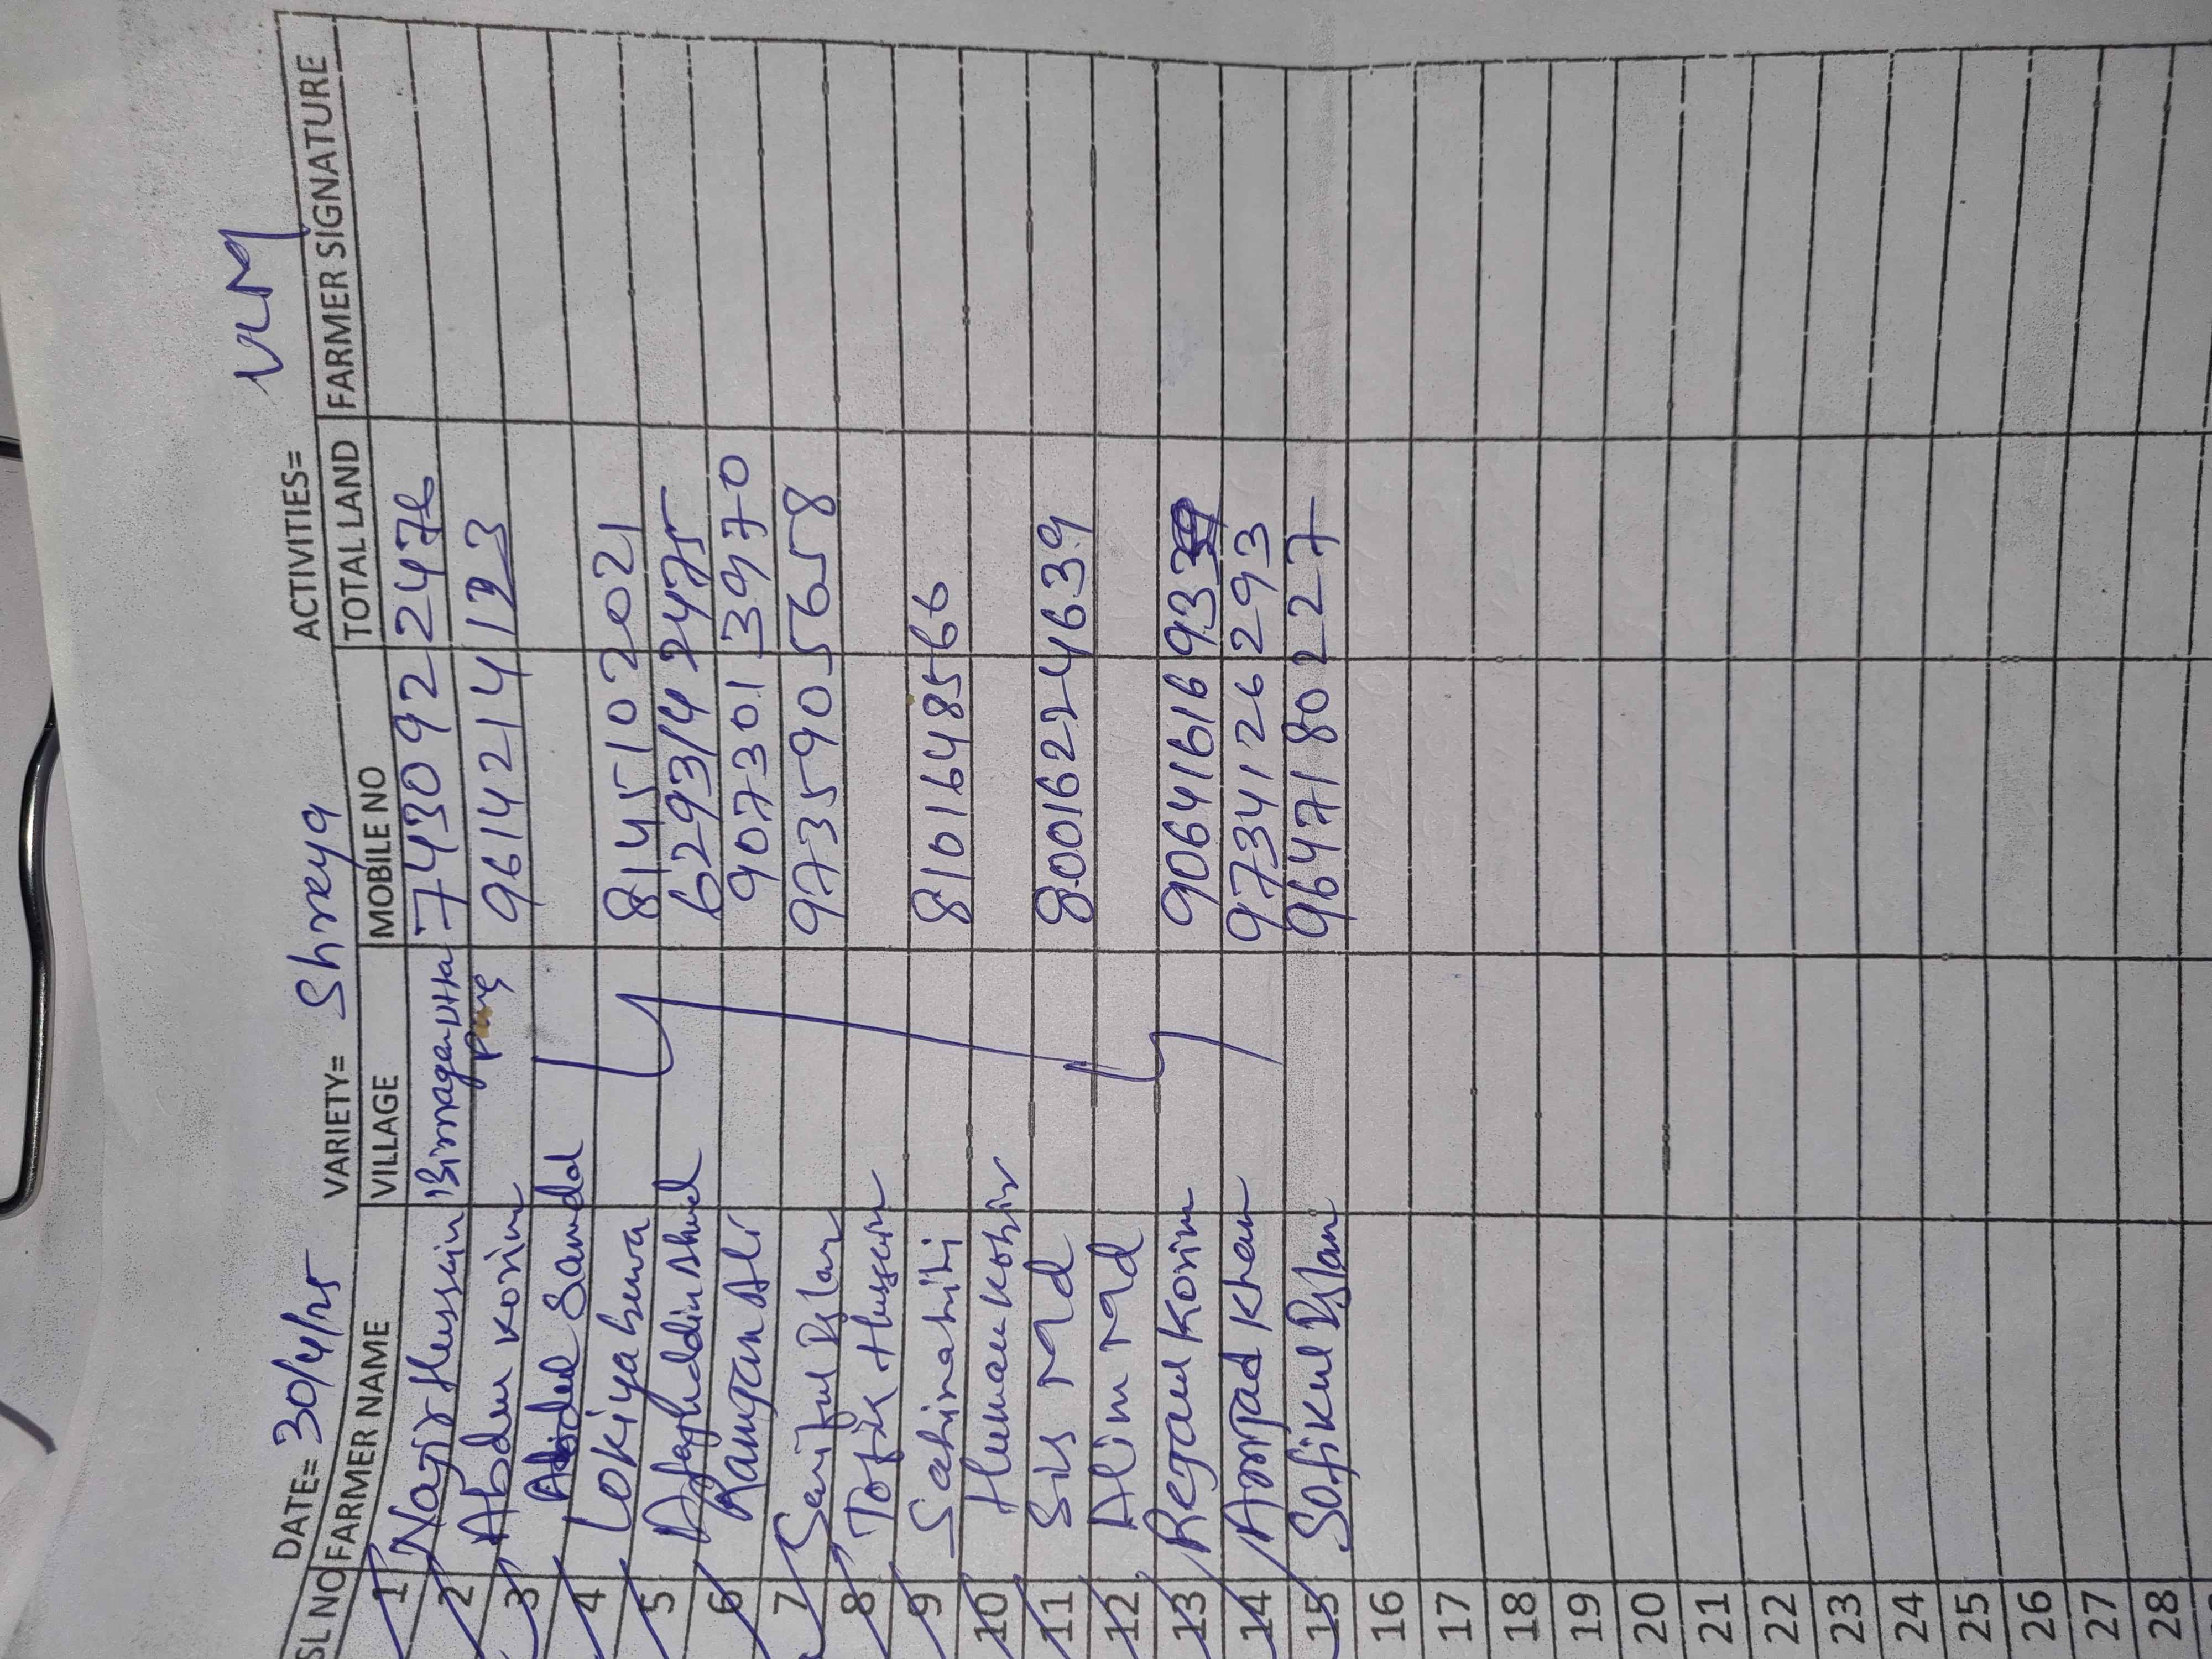 DATE= 30/4/25 VARIETY= Shreya ACTIVITIES= VLM
SL NO FARMER NAME VILLAGE MOBILE NO TOTAL LAND FARMER SIGNATURE
1 Najir Hussain 7430922476
2 Abdul Korim 9614214123
3 Abdul Samad
4 Lokiya bewa 8145102021
5 6293142475
6 Ramjan Ali 9073013970
7 Sariful Islam 9735905658
8 Tofik Hussain
9 8101648566
10
11 Sis Md 80016224639
12 Alim Md
13 Rejaul Korim 906416169339
14 Amjad Khan 9734126293
15 Sofikul Islam 9647180227
16
17
18
19
20
21
22
23
24
25
26
27
28